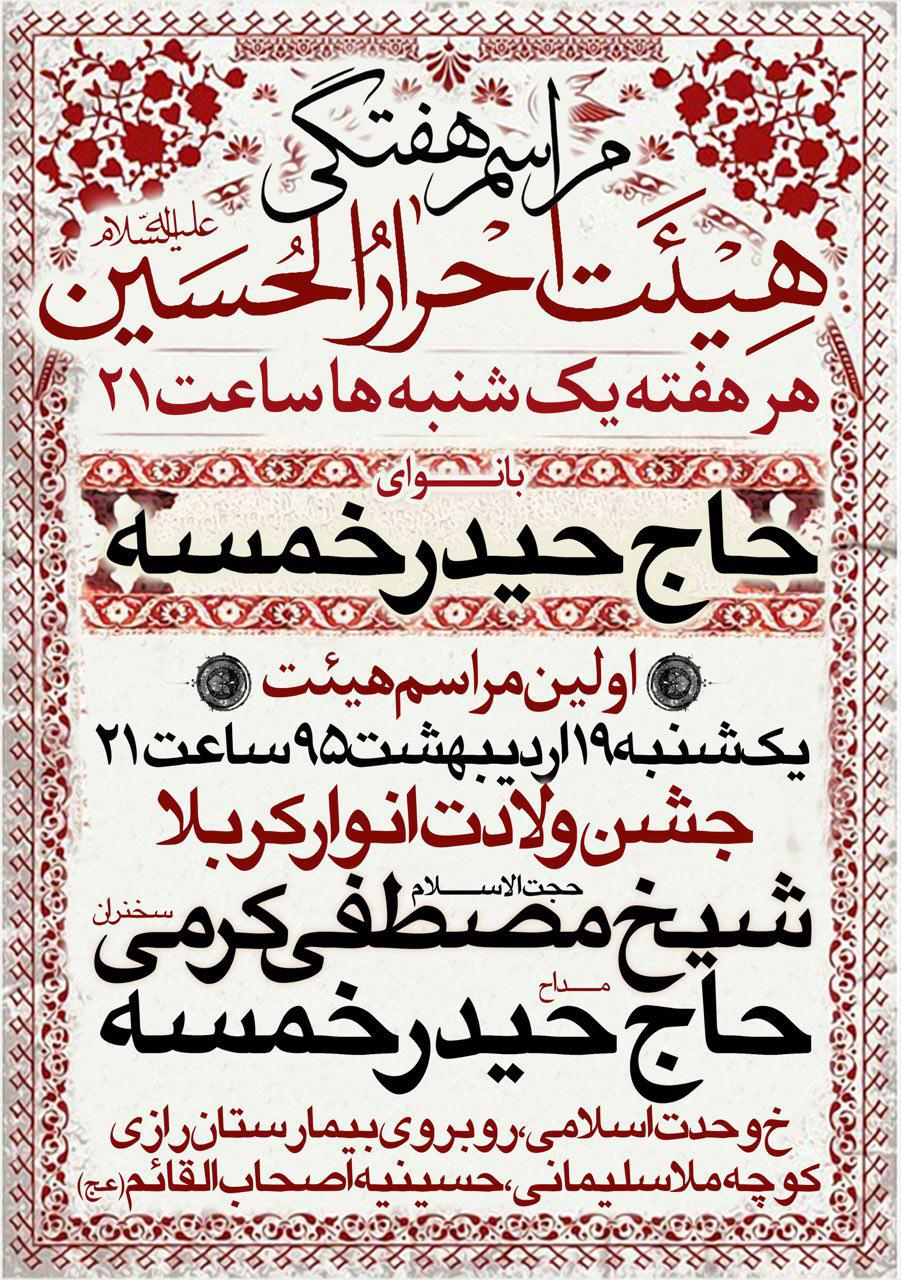 مراسم هفتگی
هیئت احرارُالحُسَین علیه‌السّلام
هر هفته یک شنبه ها ساعت ۲۱
بانوای
حاج حیدر خمسه
اولین مراسم هیئت
یکشنبه ۱۹ اردیبهشت ۹۵ ساعت ۲۱
جشن ولادت انوار کربلا
حجت الاسلام
شیخ مصطفی کرمی سخنران
مداح
حاج حیدر خمسه
خ وحدت اسلامی، روبروی بیمارستان رازی
کوچه ملا سلیمانی، حسینیه اصحاب القائم (عج)